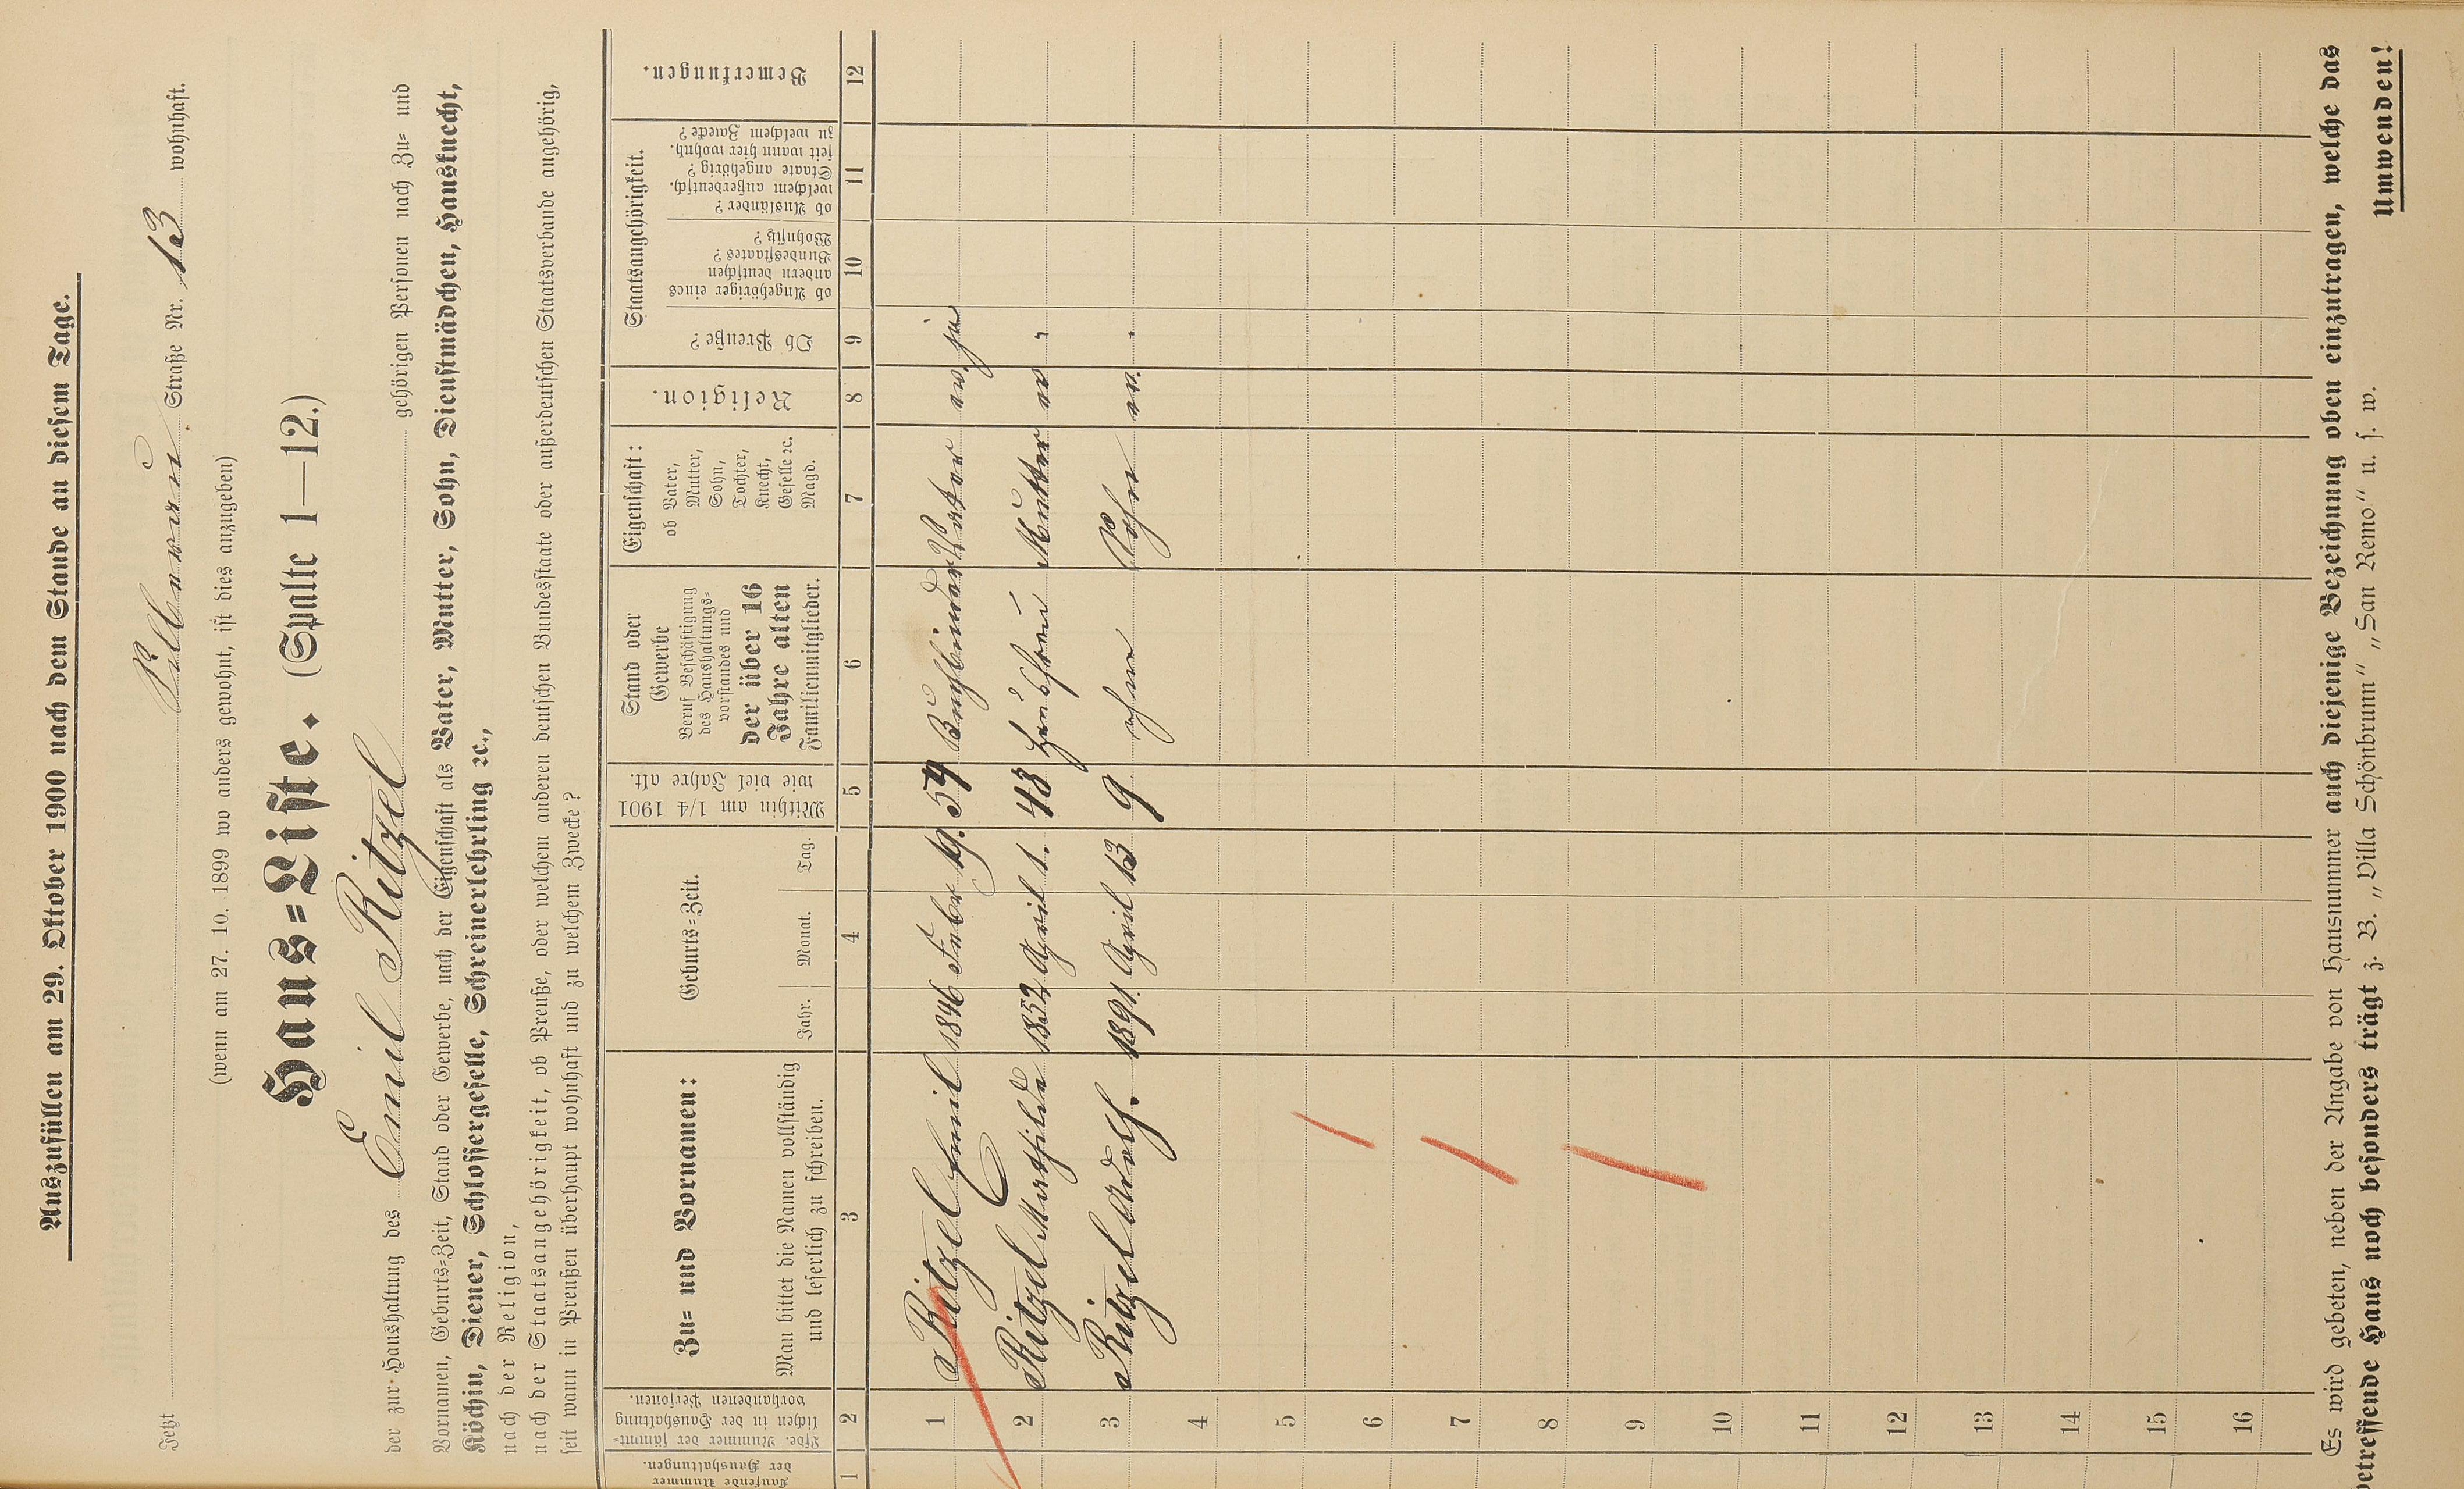 Auszufüllen am 29. Oktober 1900 nach dem Stande an diesem Tage.
Jetzt Straße Nr. 13 wohnhaft.
(wenn am 27. 10. 1899 wo anders gewohnt, ist dies anzugeben)
Haus=Liste. (Spalte 1—12.)
der zur Haushaltung des Emil Ritzel gehörigen Personen nach Zu= und
Vornamen, Geburts=Zeit, Stand oder Gewerbe, nach der Eigenschaft als Vater, Mutter, Sohn, Dienstmädchen, Hausknecht,
Köchin, Diener, Schlossergeselle, Schreinerlehrling ꝛc.,
nach der Religion,
nach der Staatsangehörigkeit, ob Preuße, oder welchem anderen deutschen Bundesstaate oder außerdeutschen Staatsverbande angehörig,
seit wann in Preußen überhaupt wohnhaft und zu welchem Zwecke?
Laufende Nummer der Haushaltungen.
Lfde. Nummer der sämmt=lichen in der Haushaltung vorhandenen Personen.
Zu= und Vornamen:
Man bittet die Namen vollständig und leserlich zu schreiben.
Geburts=Zeit.
Jahr. Monat. Tag.
Mithin am 1/4 1901 wie viel Jahre alt.
Stand oder Gewerbe
Beruf Beschäftigung des Haushaltungs=vorstandes und der über 16 Jahre alten Familienmitglieder.
Eigenschaft:
ob Vater, Mutter, Sohn, Tochter, Knecht, Geselle ꝛc. Magd.
Religion.
Staatsangehörigkeit.
Ob Preuße?
ob Angehöriger eines andern deutschen Bundesstaates? Wohnsitz?
ob Ausländer? welchem außerdeutsch. Staate angehörig? seit wann hier wohnh. zu welchem Zwecke?
Bemerkungen.
1 2 3 4 5 6 7 8 9 10 11 12
1 Ritzel Emil 1846 Febr 19. 54 Buchbinder Vater ev. ja
2 Ritzel Mathilde 1852 April 1. 48 Hausfrau Mutter ev "
3 Ritzel Adolf. 1891. April 13 9 ohne Sohn ev. "
4
5
6
7
8
9
10
11
12
13
14
15
16
Es wird gebeten, neben der Angabe von Hausnummer auch diejenige Bezeichnung oben einzutragen, welche das
betreffende Haus noch besonders trägt z. B. „Villa Schönbrunn" „San Remo" u. s. w.
Umwenden!